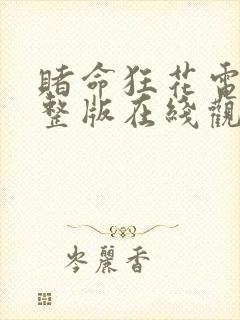 賭命狂花電
整版在綫觀
岑麗香